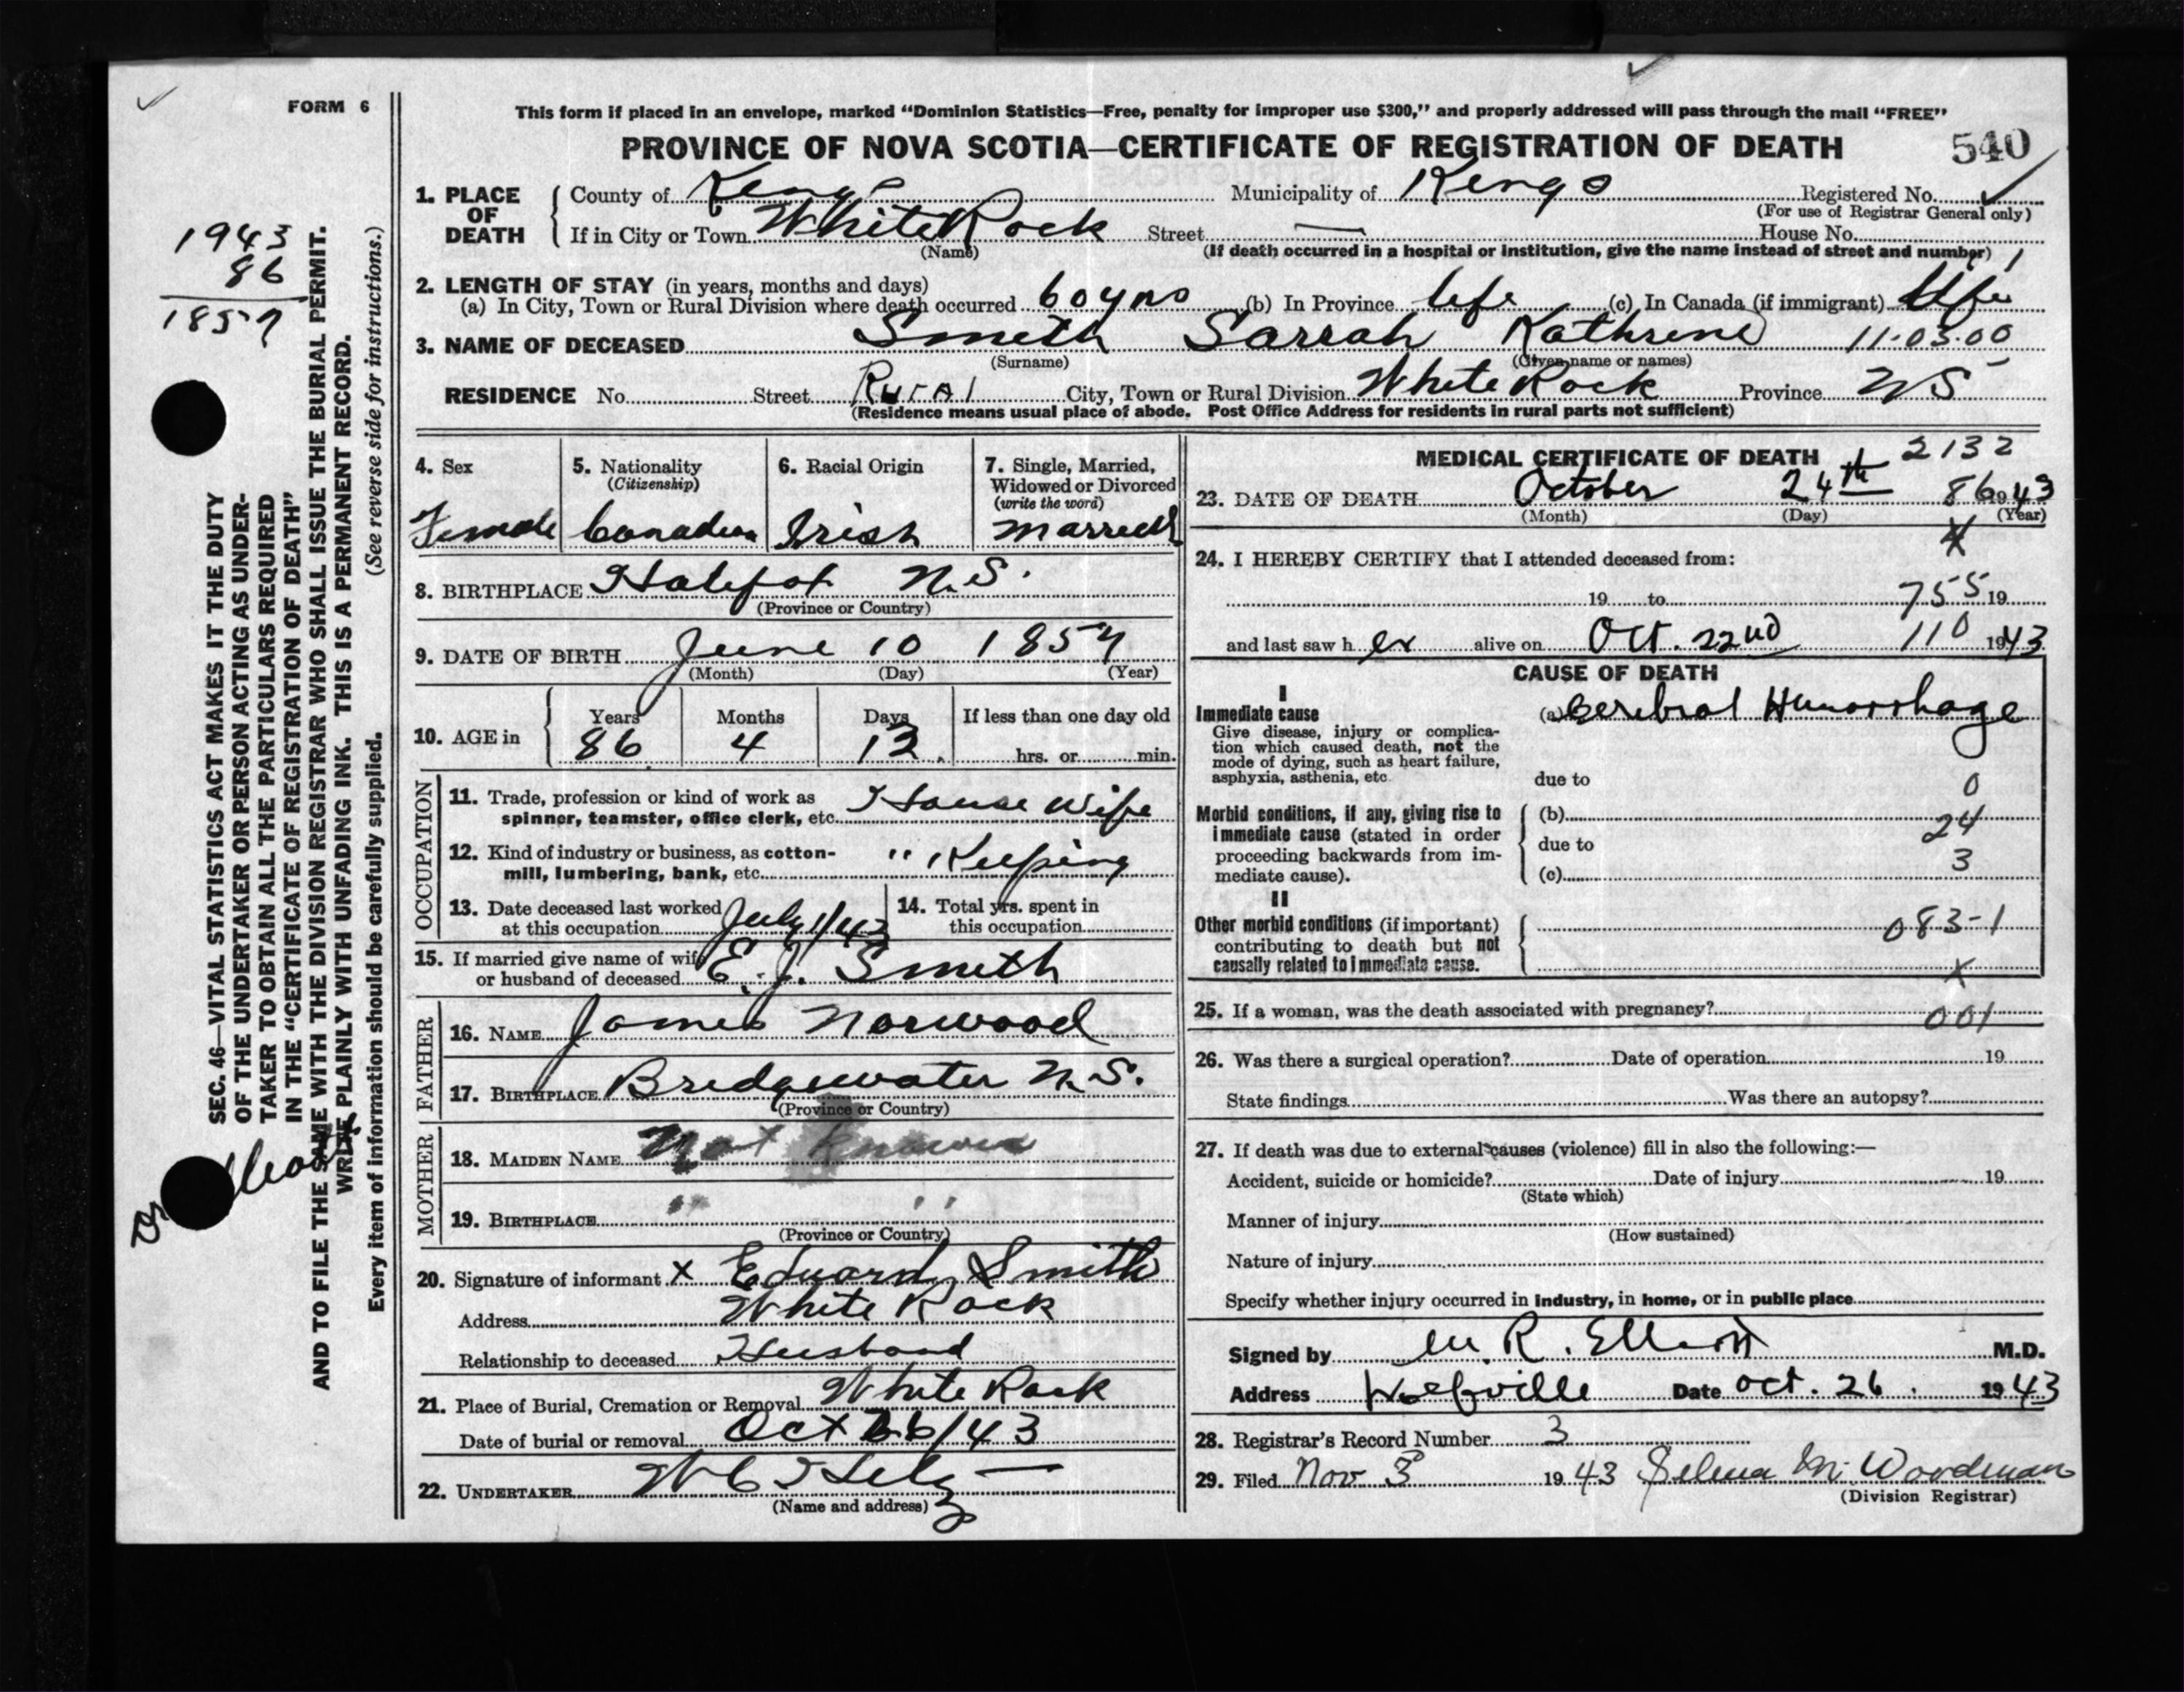 FORM 6
This form if placed in an envelope, marked "Dominion Statistics—Free, penalty for improper use $300," and properly addressed will pass through the mail "FREE"
PROVINCE OF NOVA SCOTIA—CERTIFICATE OF REGISTRATION OF DEATH 540
1. PLACE OF DEATH County of Kings Municipality of Kings Registered No.
(For use of Registrar General only)
If in City or Town White Rock Street — House No.
(Name) (If death occurred in a hospital or institution, give the name instead of street and number)
2. LENGTH OF STAY (in years, months and days)
(a) In City, Town or Rural Division where death occurred 60 yrs (b) In Province life (c) In Canada (if immigrant) life
3. NAME OF DECEASED Smith Sarrah Kathrene 11.03.00
(Surname) (Given name or names)
RESIDENCE No. Street Rural City, Town or Rural Division White Rock Province NS
(Residence means usual place of abode. Post Office Address for residents in rural parts not sufficient)
1943
86
1857
SEC. 46—VITAL STATISTICS ACT MAKES IT THE DUTY
OF THE UNDERTAKER OR PERSON ACTING AS UNDER-
TAKER TO OBTAIN ALL THE PARTICULARS REQUIRED
IN THE "CERTIFICATE OF REGISTRATION OF DEATH"
AND TO FILE THE SAME WITH THE DIVISION REGISTRAR WHO SHALL ISSUE THE BURIAL PERMIT.
WRITE PLAINLY WITH UNFADING INK. THIS IS A PERMANENT RECORD.
Every item of information should be carefully supplied. (See reverse side for instructions.)
4. Sex Female
5. Nationality (Citizenship) Canadian
6. Racial Origin Irish
7. Single, Married, Widowed or Divorced (write the word) Married
8. BIRTHPLACE Halifax N.S.
(Province or Country)
9. DATE OF BIRTH June 10 1857
(Month) (Day) (Year)
10. AGE in Years 86 Months 4 Days 12 If less than one day old
hrs. or min.
OCCUPATION
11. Trade, profession or kind of work as spinner, teamster, office clerk, etc. House Wife
12. Kind of industry or business, as cotton-mill, lumbering, bank, etc. " Keeping
13. Date deceased last worked at this occupation July 1/43
14. Total yrs. spent in this occupation
15. If married give name of wife or husband of deceased E. J. Smith
FATHER
16. NAME James Norwood
17. BIRTHPLACE Bridgewater N.S.
(Province or Country)
MOTHER
18. MAIDEN NAME Not known
19. BIRTHPLACE " "
(Province or Country)
20. Signature of informant x Edward Smith
Address White Rock
Relationship to deceased Husband
21. Place of Burial, Cremation or Removal White Rock
Date of burial or removal Oct 26/43
22. UNDERTAKER
(Name and address)
MEDICAL CERTIFICATE OF DEATH 2132
23. DATE OF DEATH October 24th 86 1943
(Month) (Day) (Year)
24. I HEREBY CERTIFY that I attended deceased from:
19 to 755 19
and last saw h er alive on Oct. 22nd 110 1943
CAUSE OF DEATH
I
Immediate cause (a) Cerebral Hemorrhage
Give disease, injury or complica-
tion which caused death, not the
mode of dying, such as heart failure,
asphyxia, asthenia, etc. due to 0
Morbid conditions, if any, giving rise to (b) 24
immediate cause (stated in order due to
proceeding backwards from im- 3
mediate cause). (c)
II
Other morbid conditions (if important) 083-1
contributing to death but not
causally related to immediate cause. x
25. If a woman, was the death associated with pregnancy? 001
26. Was there a surgical operation? Date of operation 19
State findings Was there an autopsy?
27. If death was due to external causes (violence) fill in also the following:—
Accident, suicide or homicide? Date of injury 19
(State which)
Manner of injury
(How sustained)
Nature of injury
Specify whether injury occurred in industry, in home, or in public place
Signed by M. R. Elliott M.D.
Address Wolfville Date Oct. 26. 1943
28. Registrar's Record Number 3
29. Filed Nov 3 1943 Selena M. Woodman
(Division Registrar)